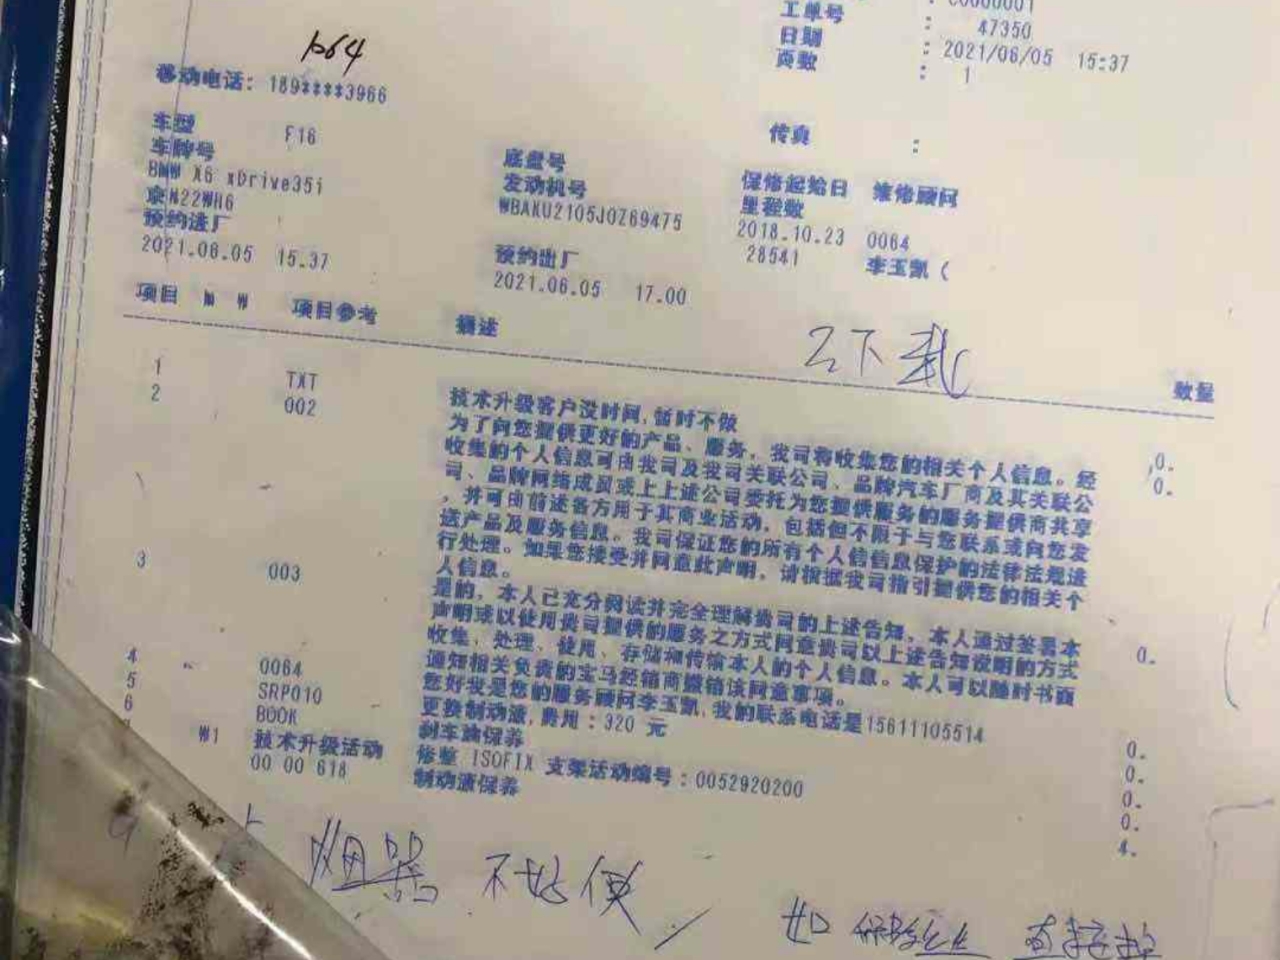 : C0000001
工单号 : 47350
日期 : 2021/06/05 15:37
页数 : 1
移动电话: 189****3966
传真 :
车型 F16
车牌号 底盘号 保修起始日 维修顾问
发动机号 里程数
BMW X6 xDrive35i WBAKU2105J0Z69475 2018.10.23 0064
京N22WH6 28541 李玉凯 (
预约进厂 预约出厂
2021.06.05 15.37 2021.06.05 17.00
项目 项目参考 描述 数量
1 TXT 技术升级客户没时间,暂时不做 0.
2 002 为了向您提供更好的产品、服务, 我司将收集您的相关个人信息。经 0.
收集的个人信息可由我司及我司关联公司、品牌汽车厂商及其关联公
司、品牌网络成员或上上述公司委托为您提供服务的服务提供商共享
, 并可由前述各方用于其商业活动, 包括但不限于与您联系或向您发
送产品及服务信息。我司保证您的所有个人信信息保护的法律法规进
行处理。如果您接受并同意此声明, 请根据我司指引提供您的相关个
人信息。
3 003 是的, 本人已充分阅读并完全理解贵司的上述告知, 本人通过签署本 0.
声明或以使用贵司提供的服务之方式同意贵司以上述告知说明的方式
收集、处理、使用、存储和传输本人的个人信息。本人可以随时书面
通知相关负责的宝马经销商撤销该同意事项。
4 0064 您好我是您的服务顾问李玉凯,我的联系电话是15611105514 0.
5 SRP010 更换制动液,费用:320 元 0.
6 BOOK 刹车油保养 0.
W1 技术升级活动 修整 ISOFIX 支架活动编号:0052920200 0.
00 00 618 制动液保养 4.
烟器 不好使
如 保险丝